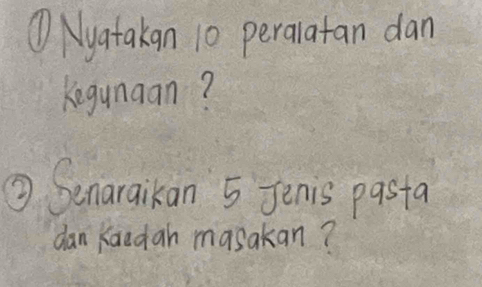 ① Nyatakan 10 peralatan dan
kegunaan ?
② Senaraikan 5 Jenis pasta
dan kaedah masakan ?